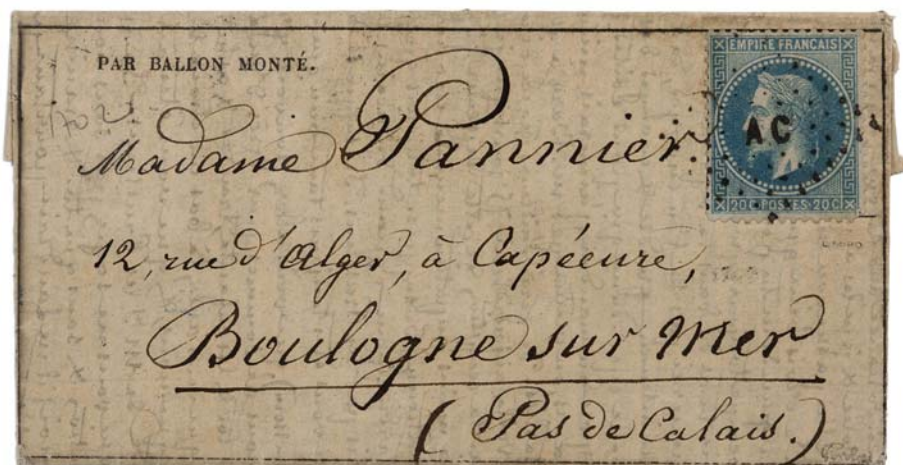 PAR BALLON MONTÉ.
EMPIRE FRANÇAIS
AC
20 C POSTES 20 C
702
Madame Pannier
12, rue d'Alger, à Capécure,
Boulogne sur Mer
(Pas de Calais.)